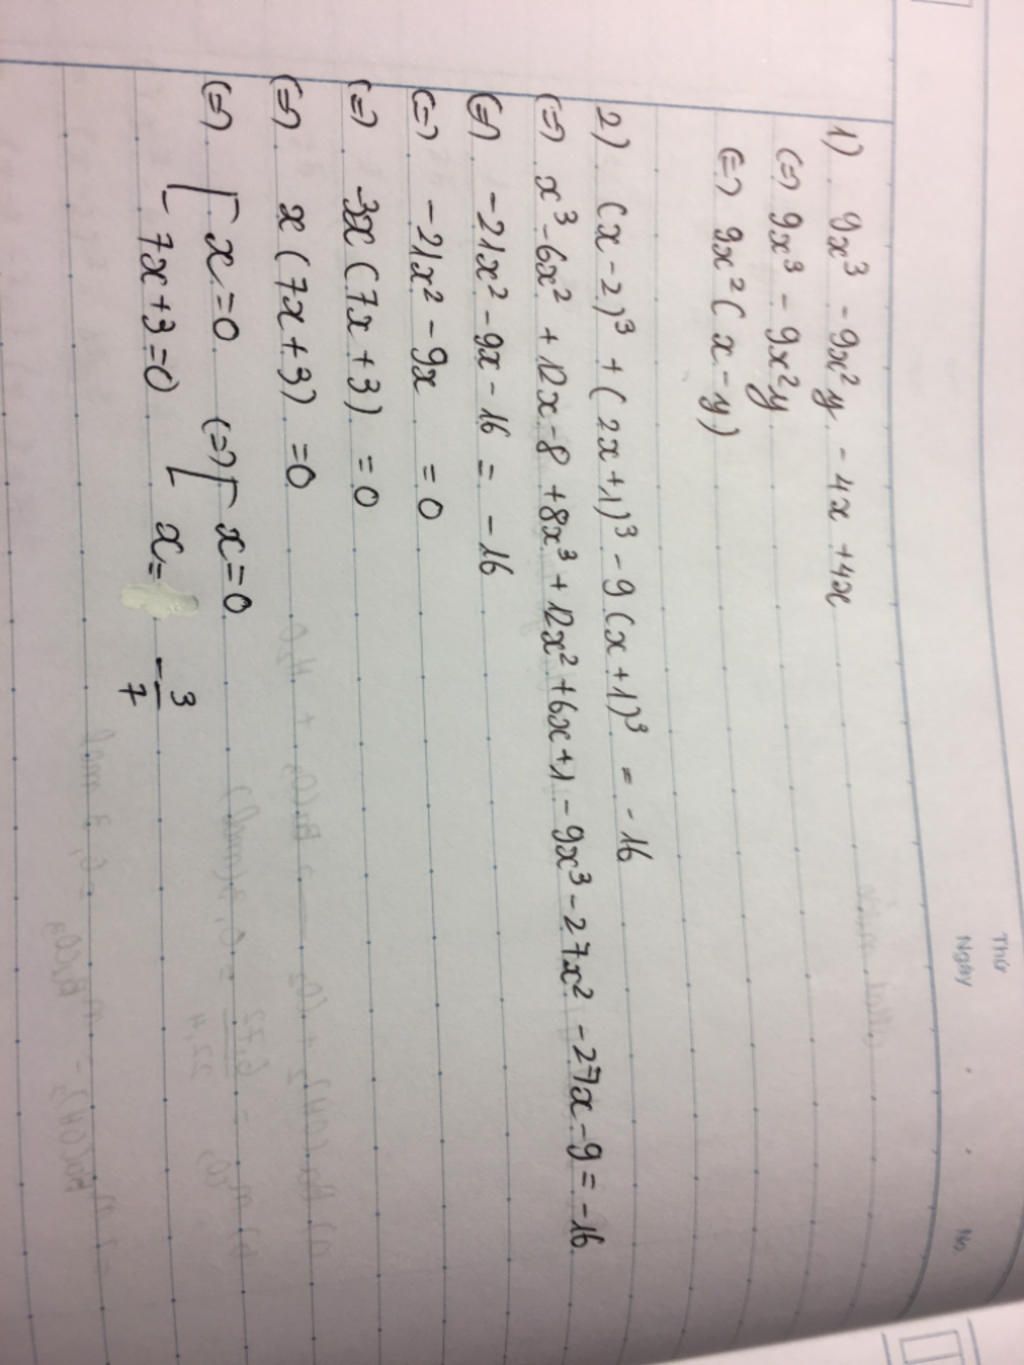 Thứ
Ngày . . No.
1) 9x³ - 9x²y - 4x + 4x
(=) 9x³ - 9x²y
(=) 9x² ( x - y )
2) (x - 2)³ + ( 2x + 1)³ - 9 (x + 1)³ = - 16
(=) x³ - 6x² + 12x - 8 + 8x³ + 12x² + 6x + 1 - 9x³ - 27x² - 27x - 9 = - 16
(=) - 21x² - 9x - 16 = - 16
(=) - 21x² - 9x = 0
(=) 3x ( 7x + 3) = 0
(=) x ( 7x + 3) = 0
(=) [ x = 0 (=) [ x = 0
7x + 3 = 0 x = - 3/7